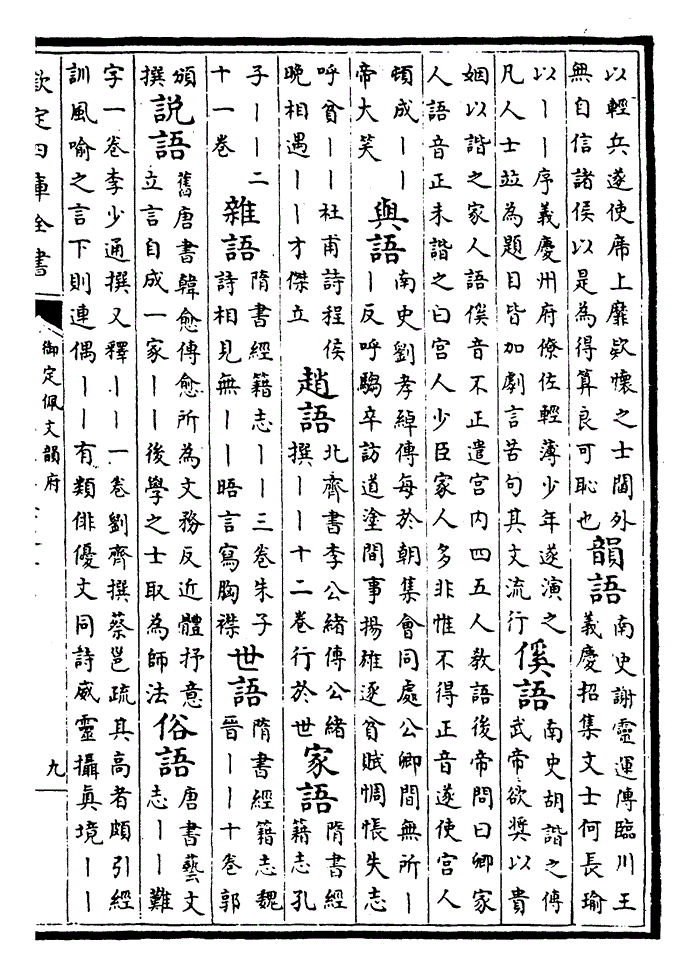 以輕兵遂使席上靡欵懷之士閫外
無自信諸侯以是為得算良可恥也
韻語
南史謝靈運傳臨川王
義慶招集文士何長瑜
以丨丨序義慶州府僚佐輕薄少年遂演之
凡人士並為題目皆加劇言苦句其文流行
傒語
南史胡諧之傳
武帝欲奬以貴
姻以諧之家人語傒音不正遣宮内四五人教語後帝問曰卿家
人語音正未諧之曰宮人少臣家人多非惟不得正音遂使宮人
頓成丨丨
帝大笑
與語
南史劉孝綽傳每於朝集會同處公卿間無所丨
丨反呼騶卒訪道塗間事揚雄逐貧賦惆悵失志
呼貧丨丨杜甫詩程侯
晚相遇丨丨才傑立
趙語
北齊書李公緒傳公緒
撰丨丨十二卷行於世
家語
隋書經
籍志孔
子丨丨二
十一卷
雜語
隋書經籍志丨丨三卷朱子
詩相見無丨丨晤言寫胸襟
世語
隋書經籍志魏
晉丨丨十卷郭
頒
撰
説語
舊唐書韓愈傳愈所為文務反近體抒意
立言自成一家丨丨後學之士取為師法
俗語
唐書藝文
志丨丨難
字一卷李少通撰又釋丨丨一卷劉齊撰蔡邕疏其高者頗引經
訓風喻之言下則連偶丨丨有類俳優文同詩威靈攝真境丨丨
欽定四庫全書
御定佩文韻府
九